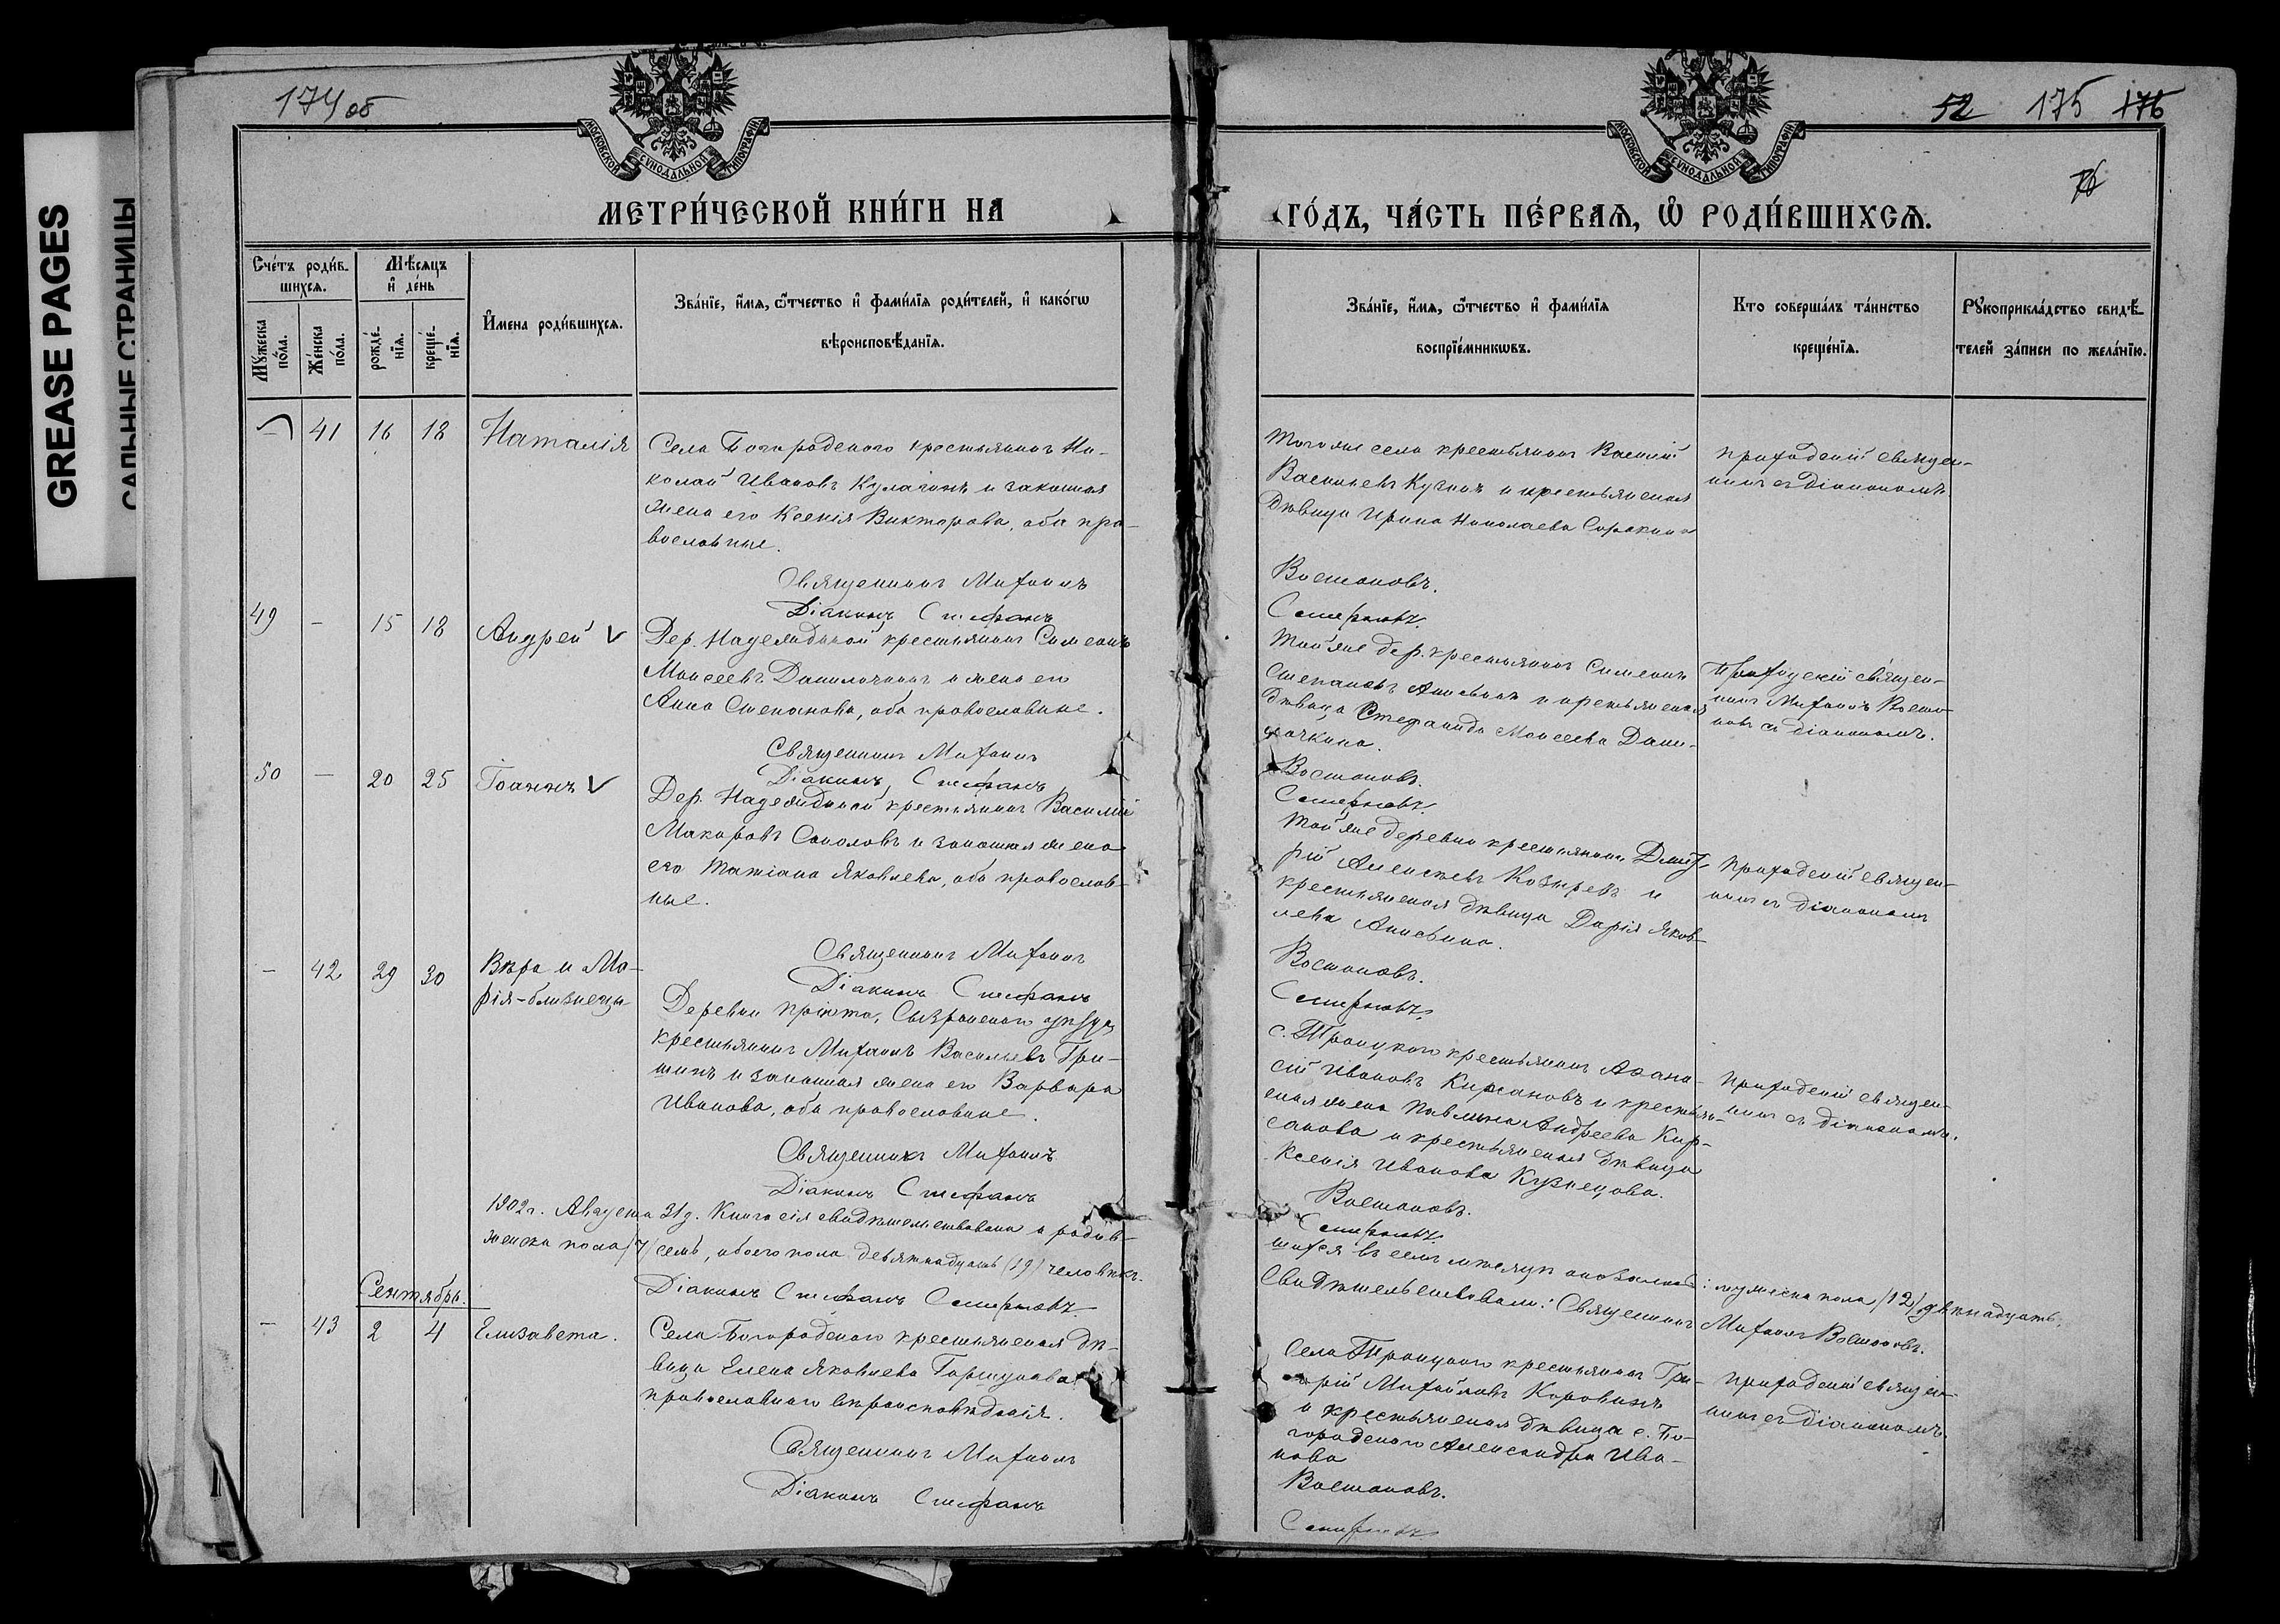 GREASE PAGES
САЛЬНЫЕ СТРАНИЦЫ
174 об
МОСКОВСКОЙ СѴНОДАЛЬНОЙ ТИПОГРАФІИ
МЕТРИ́ЧЕСКОЙ КНИ́ГИ НА
Сче́тъ роди́в-
шихся.
Мѣ́сяцъ
и҆ де́нь
Мꙋ́жеска
по́ла.
Же́нска
по́ла.
рожде́-
нїѧ.
креще́-
нїѧ.
И҆мена роди́вшихсѧ.
Зва́нїе, и҆́мѧ, ѻ҆́тчество и҆ фами́лїѧ роди́телей, и҆ како́гѡ
вѣроисповѣ́данїѧ.
- 41 16 18 Наталія
Села Богородскаго крестьянинъ Ни-
колай Ивановъ Кулагинъ и законная
жена его Ксенія Викторова, оба пра-
вославные.
Священникъ Михаилъ
Діаконъ Стефанъ
49 - 15 18 Андрей V
Дер. Надеждиной крестьянинъ Симеонъ
Моисеевъ Данилочкинъ и жена его
Анна Степанова, оба православные.
Священникъ Михаилъ
Діаконъ Стефанъ
50 - 20 25 Іоаннъ V
Дер. Надеждиной крестьянинъ Василій
Макаровъ Соколовъ и законная жена
его Татіана Яковлева, оба православ-
ные.
Священникъ Михаилъ
Діаконъ Стефанъ
- 42 29 30 Вѣра и Ма-
рія-близнецы
Деревни Пріюта, Сызранскаго уѣзда
крестьянинъ Михаилъ Васильевъ Гри-
шинъ и законная жена его Варвара
Иванова, оба православные.
Священникъ Михаилъ
Діаконъ Стефанъ
1902 г. Августа 31 д. Книга сія свидѣтельствована и родив-
женска пола /7/ семь, обоего пола девятнадцать (19) человѣкъ.
Діаконъ Стефанъ
Сентябрь.
- 43 2 4 Елизавета.
Села Богородскаго крестьянская дѣ-
вица Елена Яковлева Горшунова
православнаго вѣроисповѣданія.
Священникъ Михаилъ
Діаконъ Стефанъ
52 175 176
76
МОСКОВСКОЙ СѴНОДАЛЬНОЙ ТИПОГРАФІИ
ГО́ДЪ, ЧА́СТЬ ПЕ́РВАЯ, Ѽ РОДИ́ВШИХСЯ.
Зва́нїе, и҆́мѧ, ѻ҆́тчество и҆ фами́лїѧ
воспрїе́мникѡвъ.
Кто соверша́лъ та́инство
креще́нїѧ.
Рꙋкоприкла́дство свидѣ́-
телей за́писи по жела́нїю.
Того же села крестьянинъ Василій
Васильевъ и крестьянская
дѣвица Ирина Николаева Сорокина
Приходскій священ-
никъ съ діакономъ.
Востоковъ.
Той же дер. крестьянинъ Симеонъ
Степановъ Анисьинъ и крестьянская
дѣвица Стефанида Моисеева Дани-
лочкина.
Приходскій священ-
никъ Михаилъ Восто-
ковъ съ діакономъ.
Востоковъ.
Той же деревни крестьянинъ Димит-
рій Алексѣевъ Козыревъ и
крестьянская дѣвица Дарія Яков-
лева Анисьина.
Приходскій священ-
никъ съ діакономъ
Востоковъ.
с. Троицкаго крестьянинъ Афана-
сій Ивановъ Кирсановъ и крестьян-
ская жена Павлина Андреева Кир-
санова и крестьянская дѣвица
Ксенія Иванова Кузнецова.
Приходскій священ-
никъ съ діакономъ.
Востоковъ.
шихся въ семъ мѣсяцѣ оказалось: мужеска пола /12/ двѣнадцать,
Свидѣтельствовали: Священникъ Михаилъ Востоковъ.
Села Троицкаго крестьянинъ Гри-
горій Михайловъ Коровинъ
и крестьянская дѣвица с. Бо-
городскаго Александра Ива-
нова
Приходскій священ-
никъ съ діакономъ.
Востоковъ.